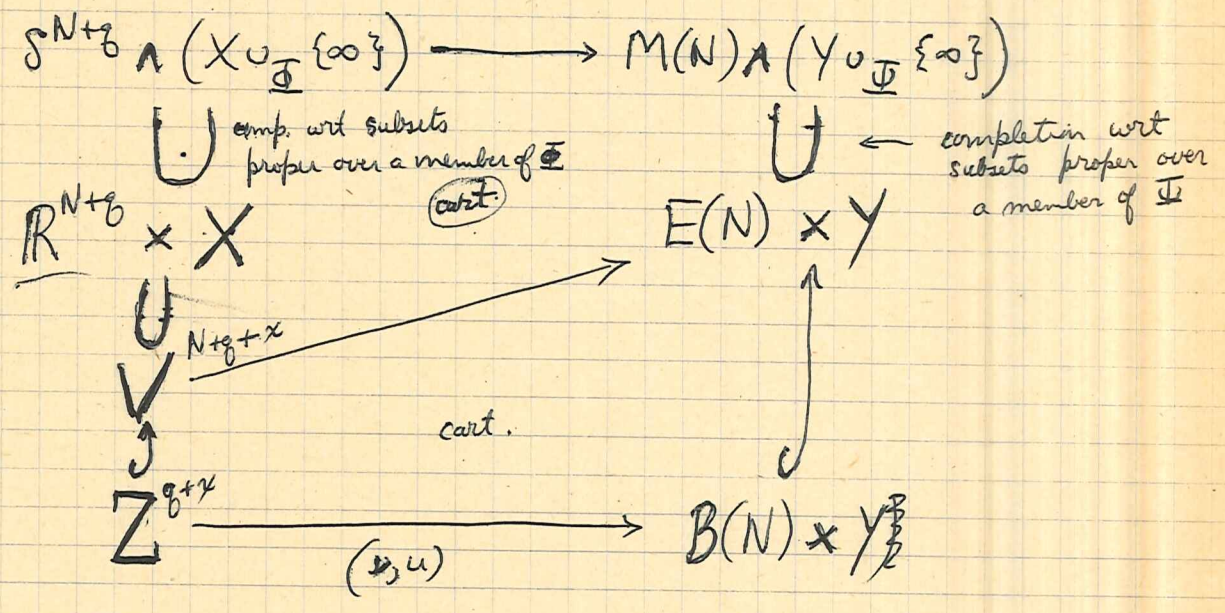 S^{N+q} ∧ (X ∪_Φ {∞}) ⟶ M(N) ∧ (Y ∪_Φ {∞})
∪ comp. wrt subsets
proper over a member of Φ
∪ ← completion wrt
subsets proper over
a member of Ψ
cart.
R^{N+q} × X
E(N) × Y
∪
V^{N+q+x}
cart.
Z^{q+x}
B(N) × Y
(ν, u)